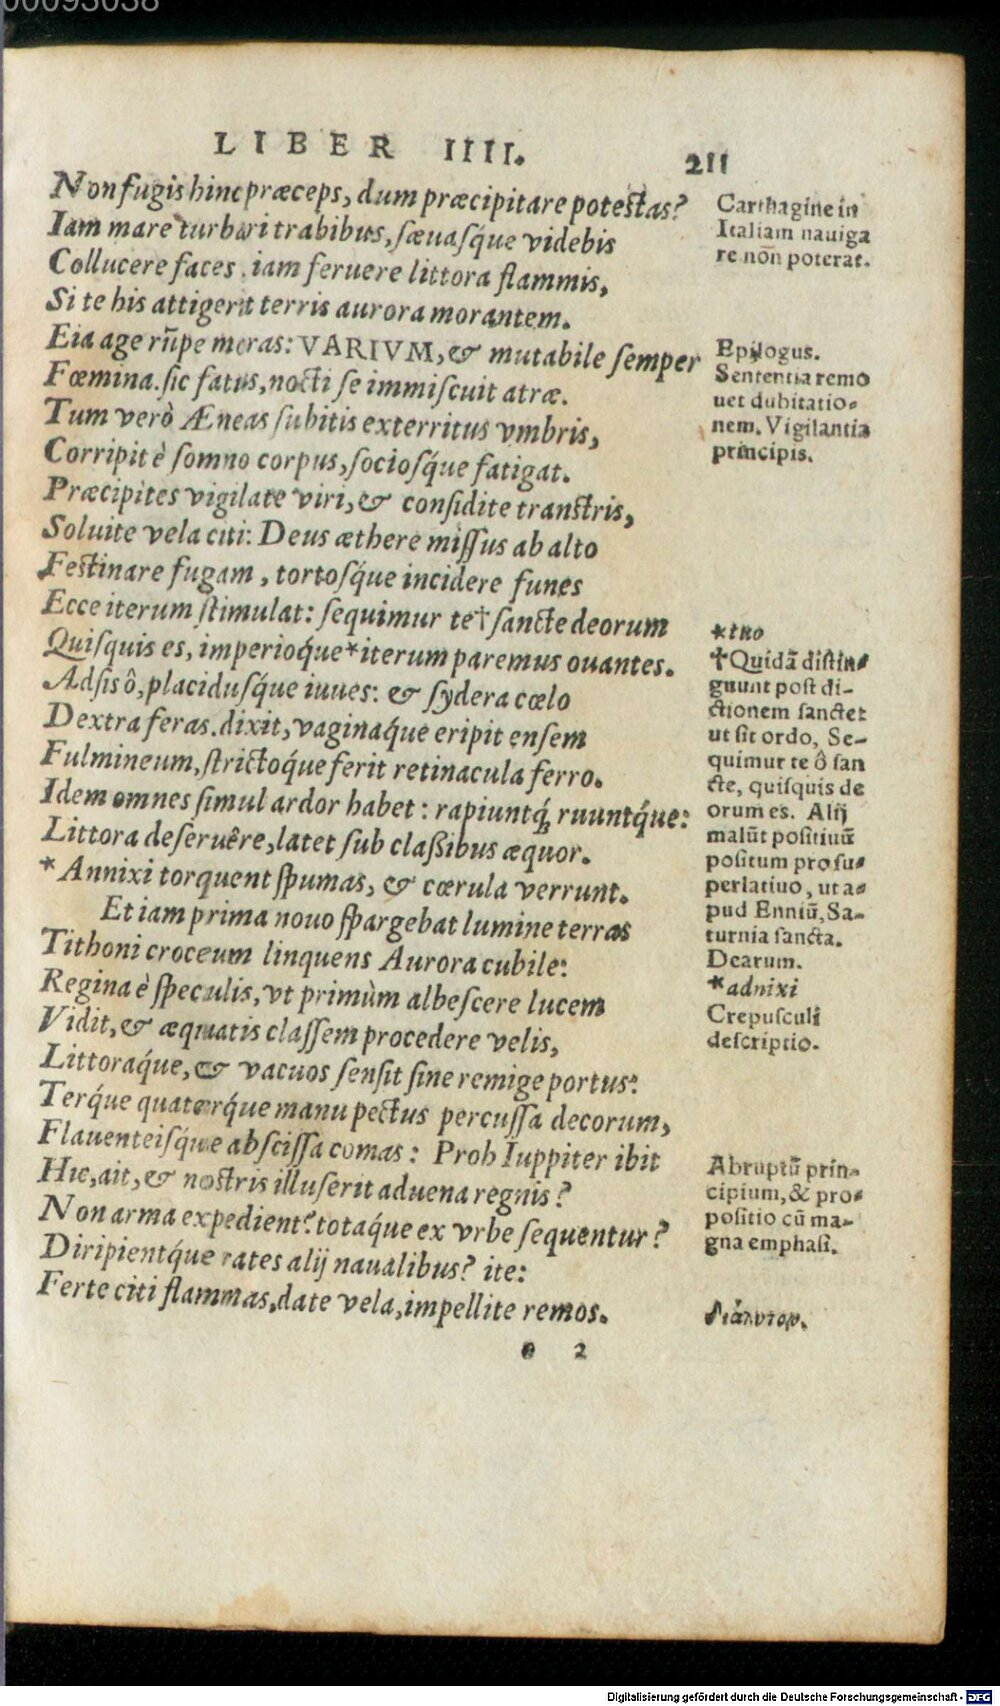 LIBER IIII.
211
Non fugis hinc præceps, dum præcipitare potestas?
Iam mare turbari trabibus, sæuasq́ue videbis
Collucere faces, iam feruere littora flammis,
Si te his attigerit terris aurora morantem.
Eia age rūpe moras: VARIVM, & mutabile semper
Fœmina. sic fatus, nocti se immiscuit atræ.
Tum verò Æneas subitis exterritus vmbris,
Corripit è somno corpus, sociosq́ue fatigat.
Præcipites vigilate viri, & considite transtris,
Soluite vela citi: Deus æthere missus ab alto
Festinare fugam, tortosq́ue incidere funes
Ecce iterum stimulat: sequimur te† sancte deorum
Quisquis es, imperioq́ue*iterum paremus ouantes.
Adsis ô, placidusq́ue iuues: & sydera cœlo
Dextra feras. dixit, vaginaq́ue eripit ensem
Fulmineum, strictoq́ue ferit retinacula ferro.
Idem omnes simul ardor habet: rapiuntq́; ruuntq́ue:
Littora deseruêre, latet sub classibus æquor.
*Annixi torquent spumas, & cœrula verrunt.
Et iam prima nouo spargebat lumine terras
Tithoni croceum linquens Aurora cubile:
Regina è speculis, vt primùm albescere lucem
Vidit, & æquatis classem procedere velis,
Littoraq́ue, & vacuos sensit sine remige portus:
Terq́ue quaterq́ue manu pectus percussa decorum,
Flauenteisq́ue abscissa comas: Proh Iuppiter ibit
Hic, ait, & nostris illuserit aduena regnis?
Non arma expedient? totaq́ue ex vrbe sequentur?
Diripientq́ue rates alij naualibus? ite:
Ferte citi flammas, date vela, impellite remos.
e 2
Carthagine in
Italiam nauiga
re non poterat.
Epilogus.
Sententia remo
uet dubitatio-
nem. Vigilantia
principis.
*tuo
†Quidā distin-
guunt post di-
ctionem sanctet
ut sit ordo, Se-
quimur te ô san
cte, quisquis de
orum es. Alij
malūt positiuū
positum pro su-
perlatiuo, ut a-
pud Enniū, Sa-
turnia sancta.
Dearum.
*adnixi
Crepusculi
descriptio.
Abruptū prin-
cipium, & pro-
positio cū ma-
gna emphasi.
διάλυτον.
Digitalisierung gefördert durch die Deutsche Forschungsgemeinschaft - DFG